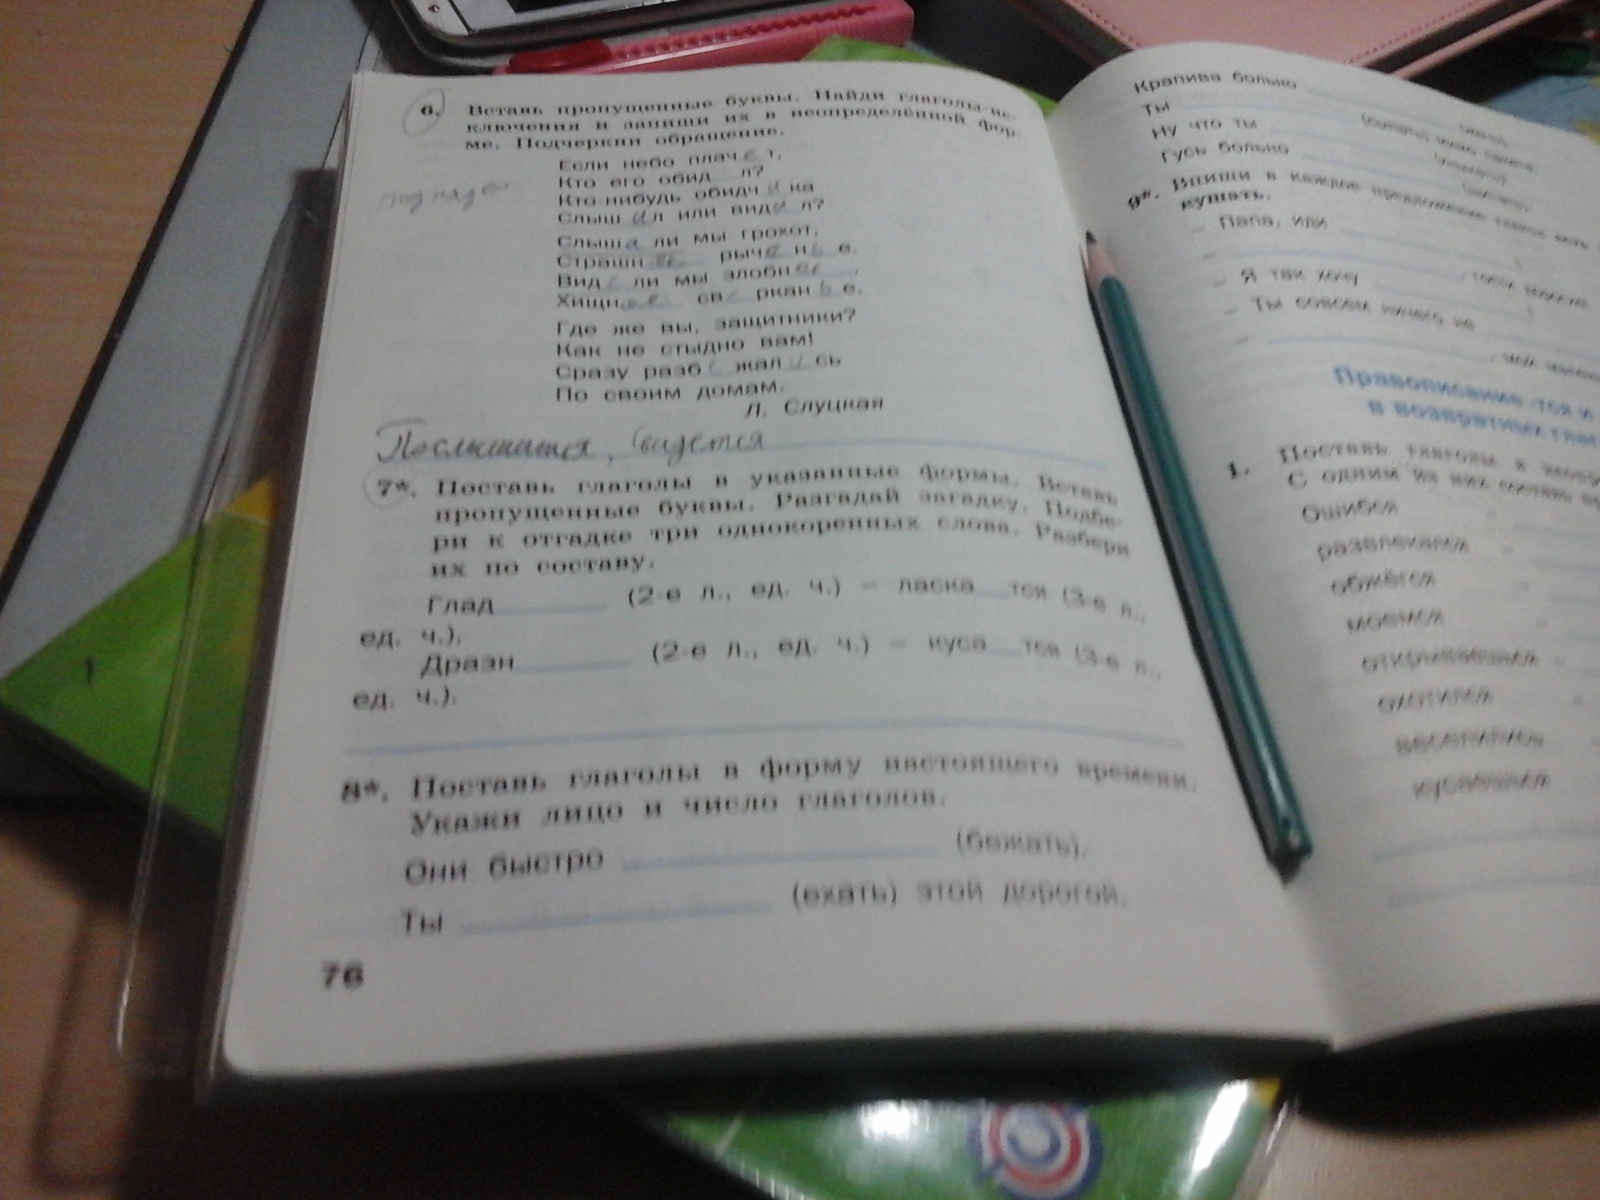 6. Вставь пропущенные буквы. Найди глаголы-ис-
ключения и запиши их в неопределённой фор-
ме. Подчеркни обращение.
Если небо плачет,
Кто его обид л?
Кто-нибудь обидч и ка
Слыш ал или вид и л?
Слыша ли мы грохот,
Страшн рыча нь е.
Вид е ли мы злобн ое ,
Хищное св е ркан ь е.
Где же вы, защитники?
Как не стыдно вам!
Сразу разб е жал и сь
По своим домам.
Л. Слуцкая
7*. Поставь глаголы в указанные формы. Вставь
пропущенные буквы. Разгадай загадку. Подбе-
ри к отгадке три однокоренных слова. Разбери
их по составу.
Глад (2-е л., ед. ч.) – ласка тся (3-е л.,
ед. ч.),
Дразн (2-е л., ед. ч.) – куса тся (3-е л.,
ед. ч.).
8*. Поставь глаголы в форму настоящего времени.
Укажи лицо и число глаголов.
Они быстро (бежать).
Ты (ехать) этой дорогой.
76
Крапива больно
Ты
Ну что ты
Гусь больно
9*. Впиши в каждое предложение глагол есть
кушать.
– Папа, иди
– Я так хочу
– Ты совсем ничего не
Правописание -тся и
в возвратных глаг
1. Поставь глаголы в неопр
С одним из них составь пр
Ошибся –
развлекался –
обжёгся –
моемся –
открываешься –
охотился –
веселились –
кусаешься